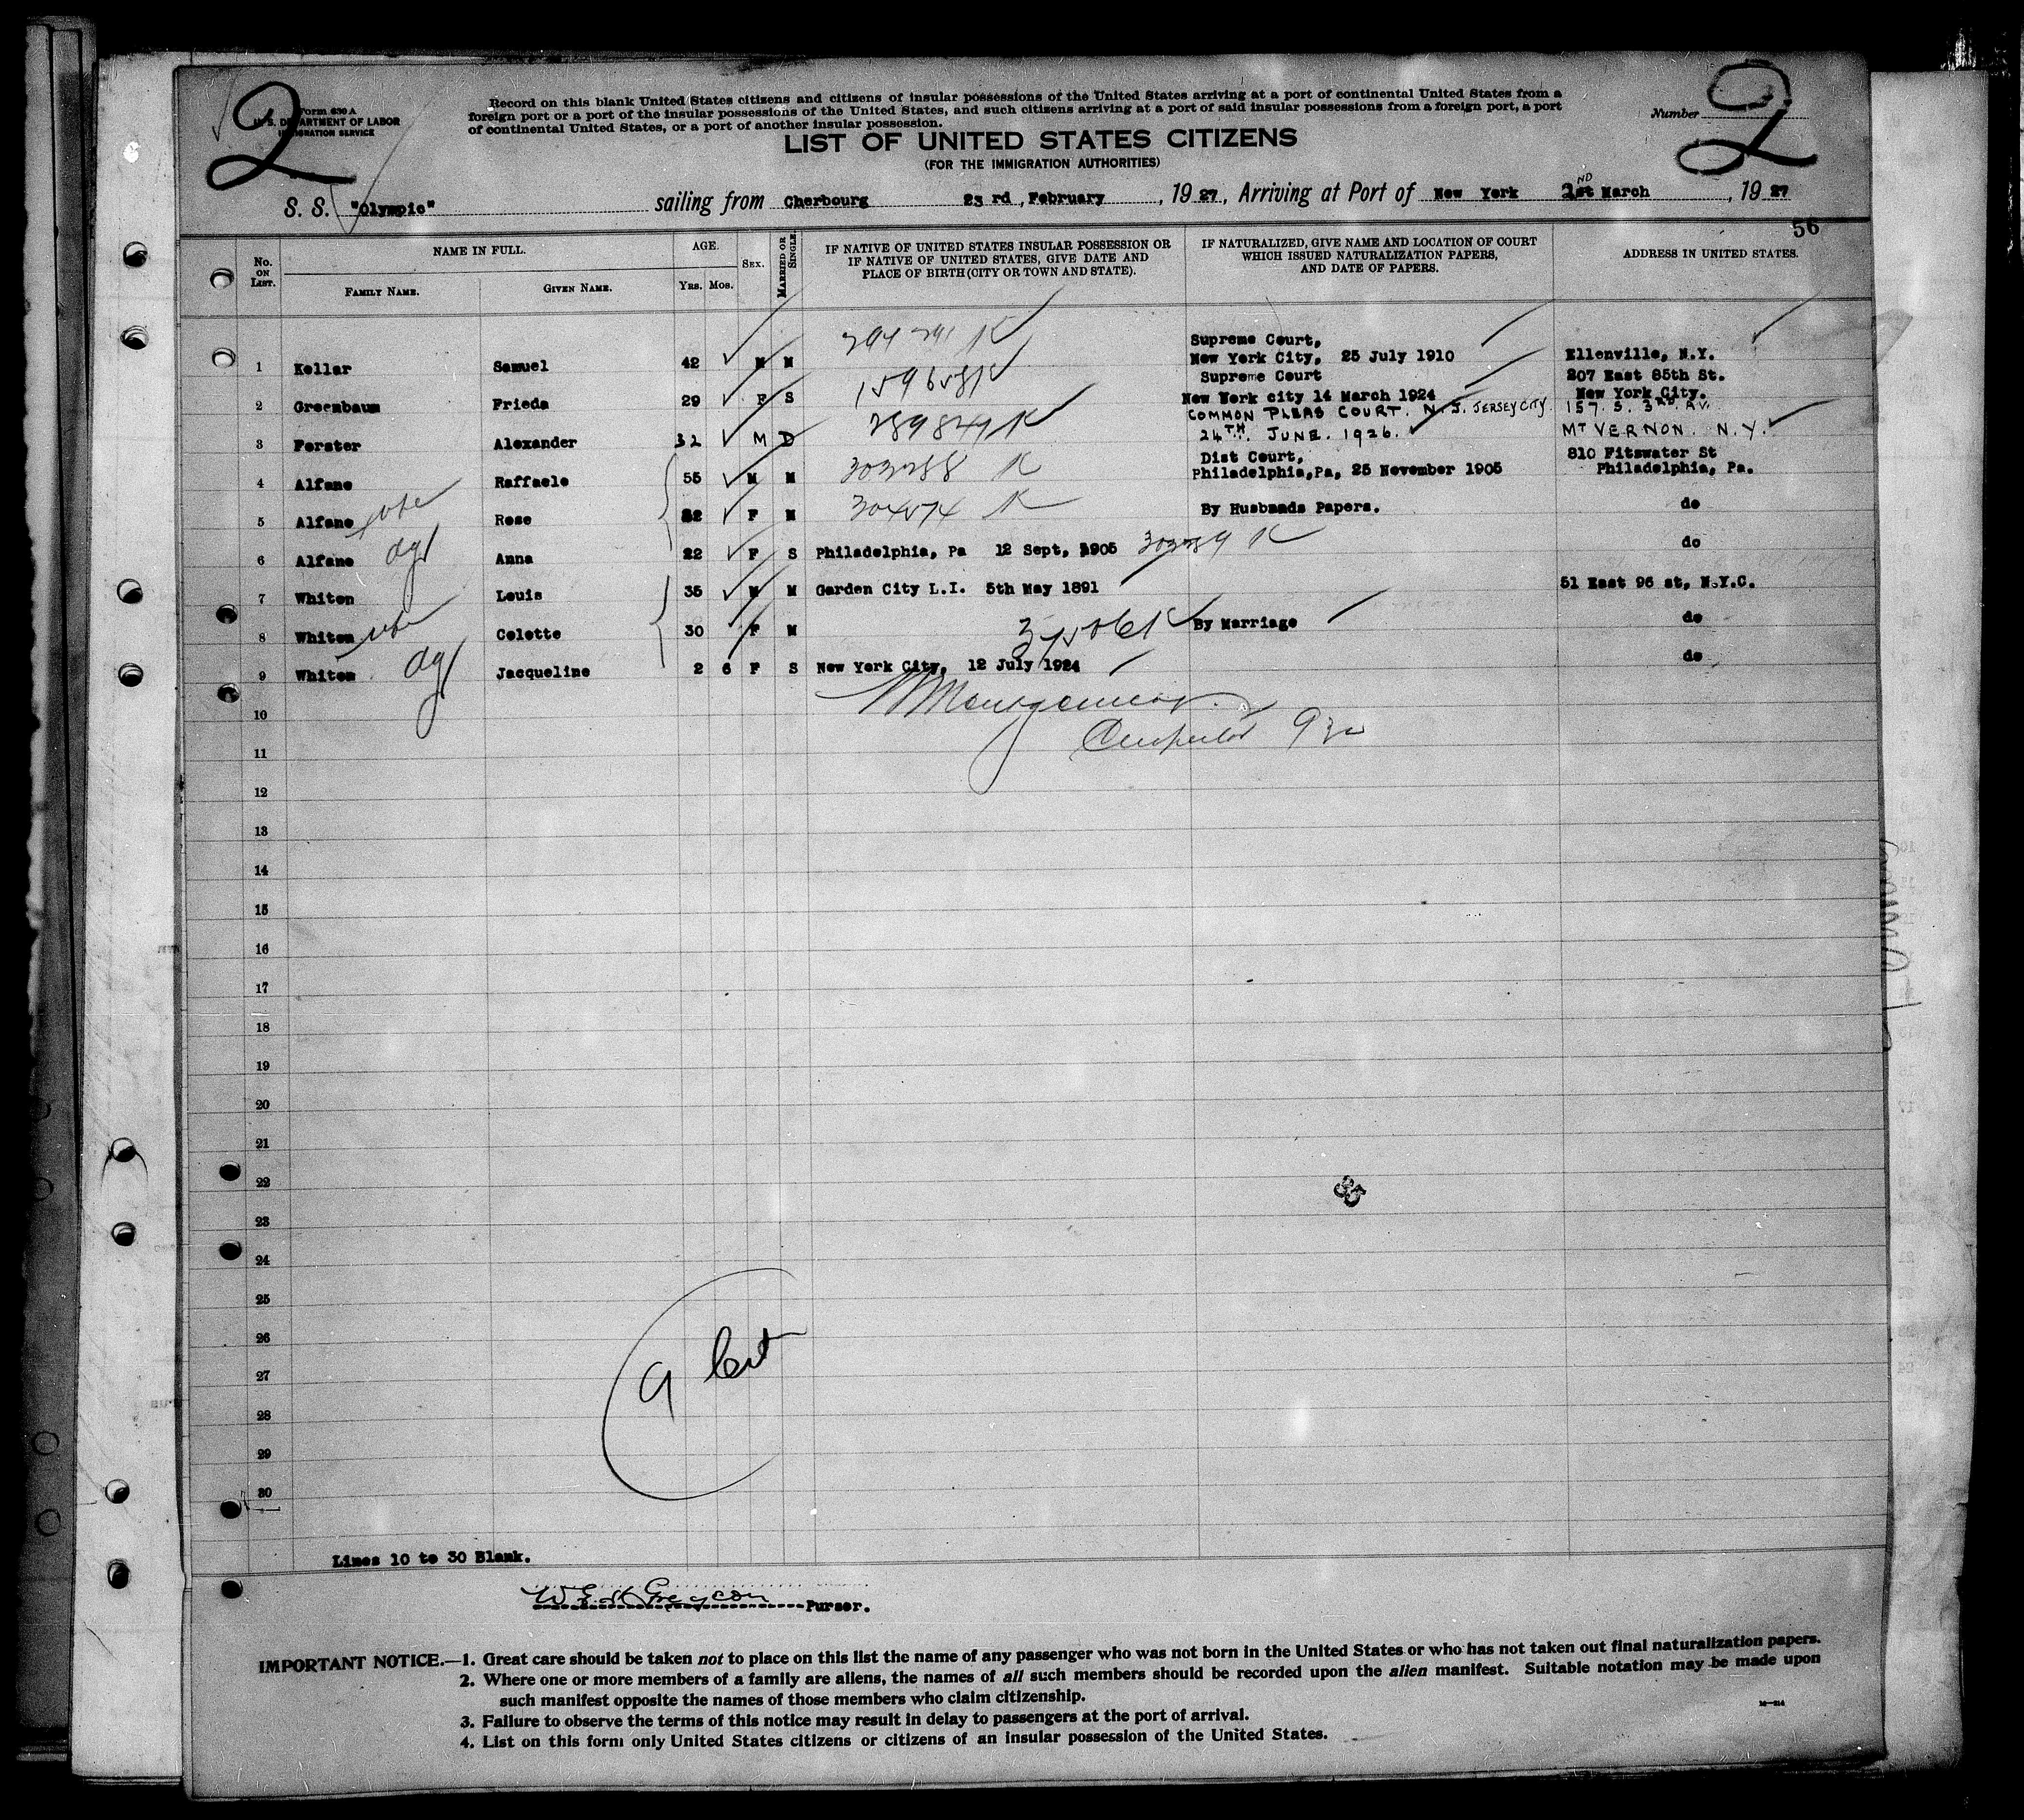 2
Form 630 A
U. S. DEPARTMENT OF LABOR
IMMIGRATION SERVICE
Record on this blank United States citizens and citizens of insular possessions of the United States arriving at a port of continental United States from a
foreign port or a port of the insular possessions of the United States, and such citizens arriving at a port of said insular possessions from a foreign port, a port
of continental United States, or a port of another insular possession.
Number 2
LIST OF UNITED STATES CITIZENS
(FOR THE IMMIGRATION AUTHORITIES)
S. S. "Olympic" sailing from Cherbourg 23 rd, February, 1927, Arriving at Port of New York 2ND March, 1927
56
No. ON LIST. NAME IN FULL. AGE. SEX. MARRIED OR SINGLE. IF NATIVE OF UNITED STATES INSULAR POSSESSION OR IF NATIVE OF UNITED STATES, GIVE DATE AND PLACE OF BIRTH (CITY OR TOWN AND STATE). IF NATURALIZED, GIVE NAME AND LOCATION OF COURT WHICH ISSUED NATURALIZATION PAPERS, AND DATE OF PAPERS. ADDRESS IN UNITED STATES.
FAMILY NAME. GIVEN NAME. YRS. MOS.
Supreme Court,
1 Kellar Samuel 42 M M New York City, 25 July 1910 Ellenville, N.Y.
Supreme Court 207 East 85th St.
2 Greenbaum Frieda 29 F S New York city 14 March 1924 New York City.
COMMON PLEAS COURT. N.J. JERSEY CITY. 157. S. 3RD. AV.
3 Forster Alexander 32 M D 24TH. JUNE. 1926. MT VERNON. N.Y.
Dist Court, 810 Fitswater St
4 Alfane Raffaele 55 M M 303288 K Philadelphia,Pa, 25 November 1905 Philadelphia, Pa.
5 Alfane wfe Rose F M By Husbands Papers. do
6 Alfane dgt Anna 22 F S Philadelphia, Pa 12 Sept, 1905 303289 K do
7 Whiton Louis 35 M M Garden City L.I. 5th May 1891 51 East 96 st, N.Y.C.
8 Whiton wfe Colette 30 F M By Marriage do
9 Whiton dgt Jacqueline 2 6 F S New York City, 12 July 1924 do
10
11
12
13
14
15
16
17
18
19
20
21
22
23
24
25
26
27
28
29
30
35
9
Lines 10 to 30 Blank.
Purser.
IMPORTANT NOTICE.—1. Great care should be taken not to place on this list the name of any passenger who was not born in the United States or who has not taken out final naturalization papers.
2. Where one or more members of a family are aliens, the names of all such members should be recorded upon the alien manifest. Suitable notation may be made upon
such manifest opposite the names of those members who claim citizenship.
3. Failure to observe the terms of this notice may result in delay to passengers at the port of arrival.
4. List on this form only United States citizens or citizens of an insular possession of the United States.